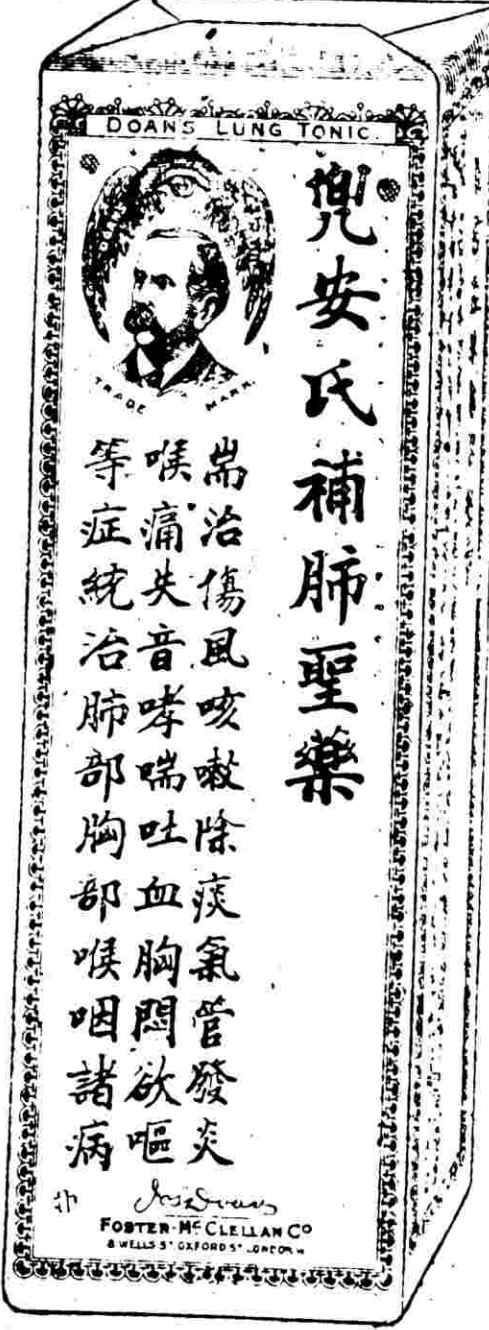 DOAN'S LUNG TONIC.
DOAN
TRADE MARK
兜安氏補肺聖藥
耑治傷風咳嗽除痰氣管發炎
喉痛失音哮喘吐血胸悶欲嘔
等症統治肺部胸部喉咽諸病
Jas Doan
FOSTER-McCLELLAN CO
8 WELLS ST OXFORD ST LONDON W